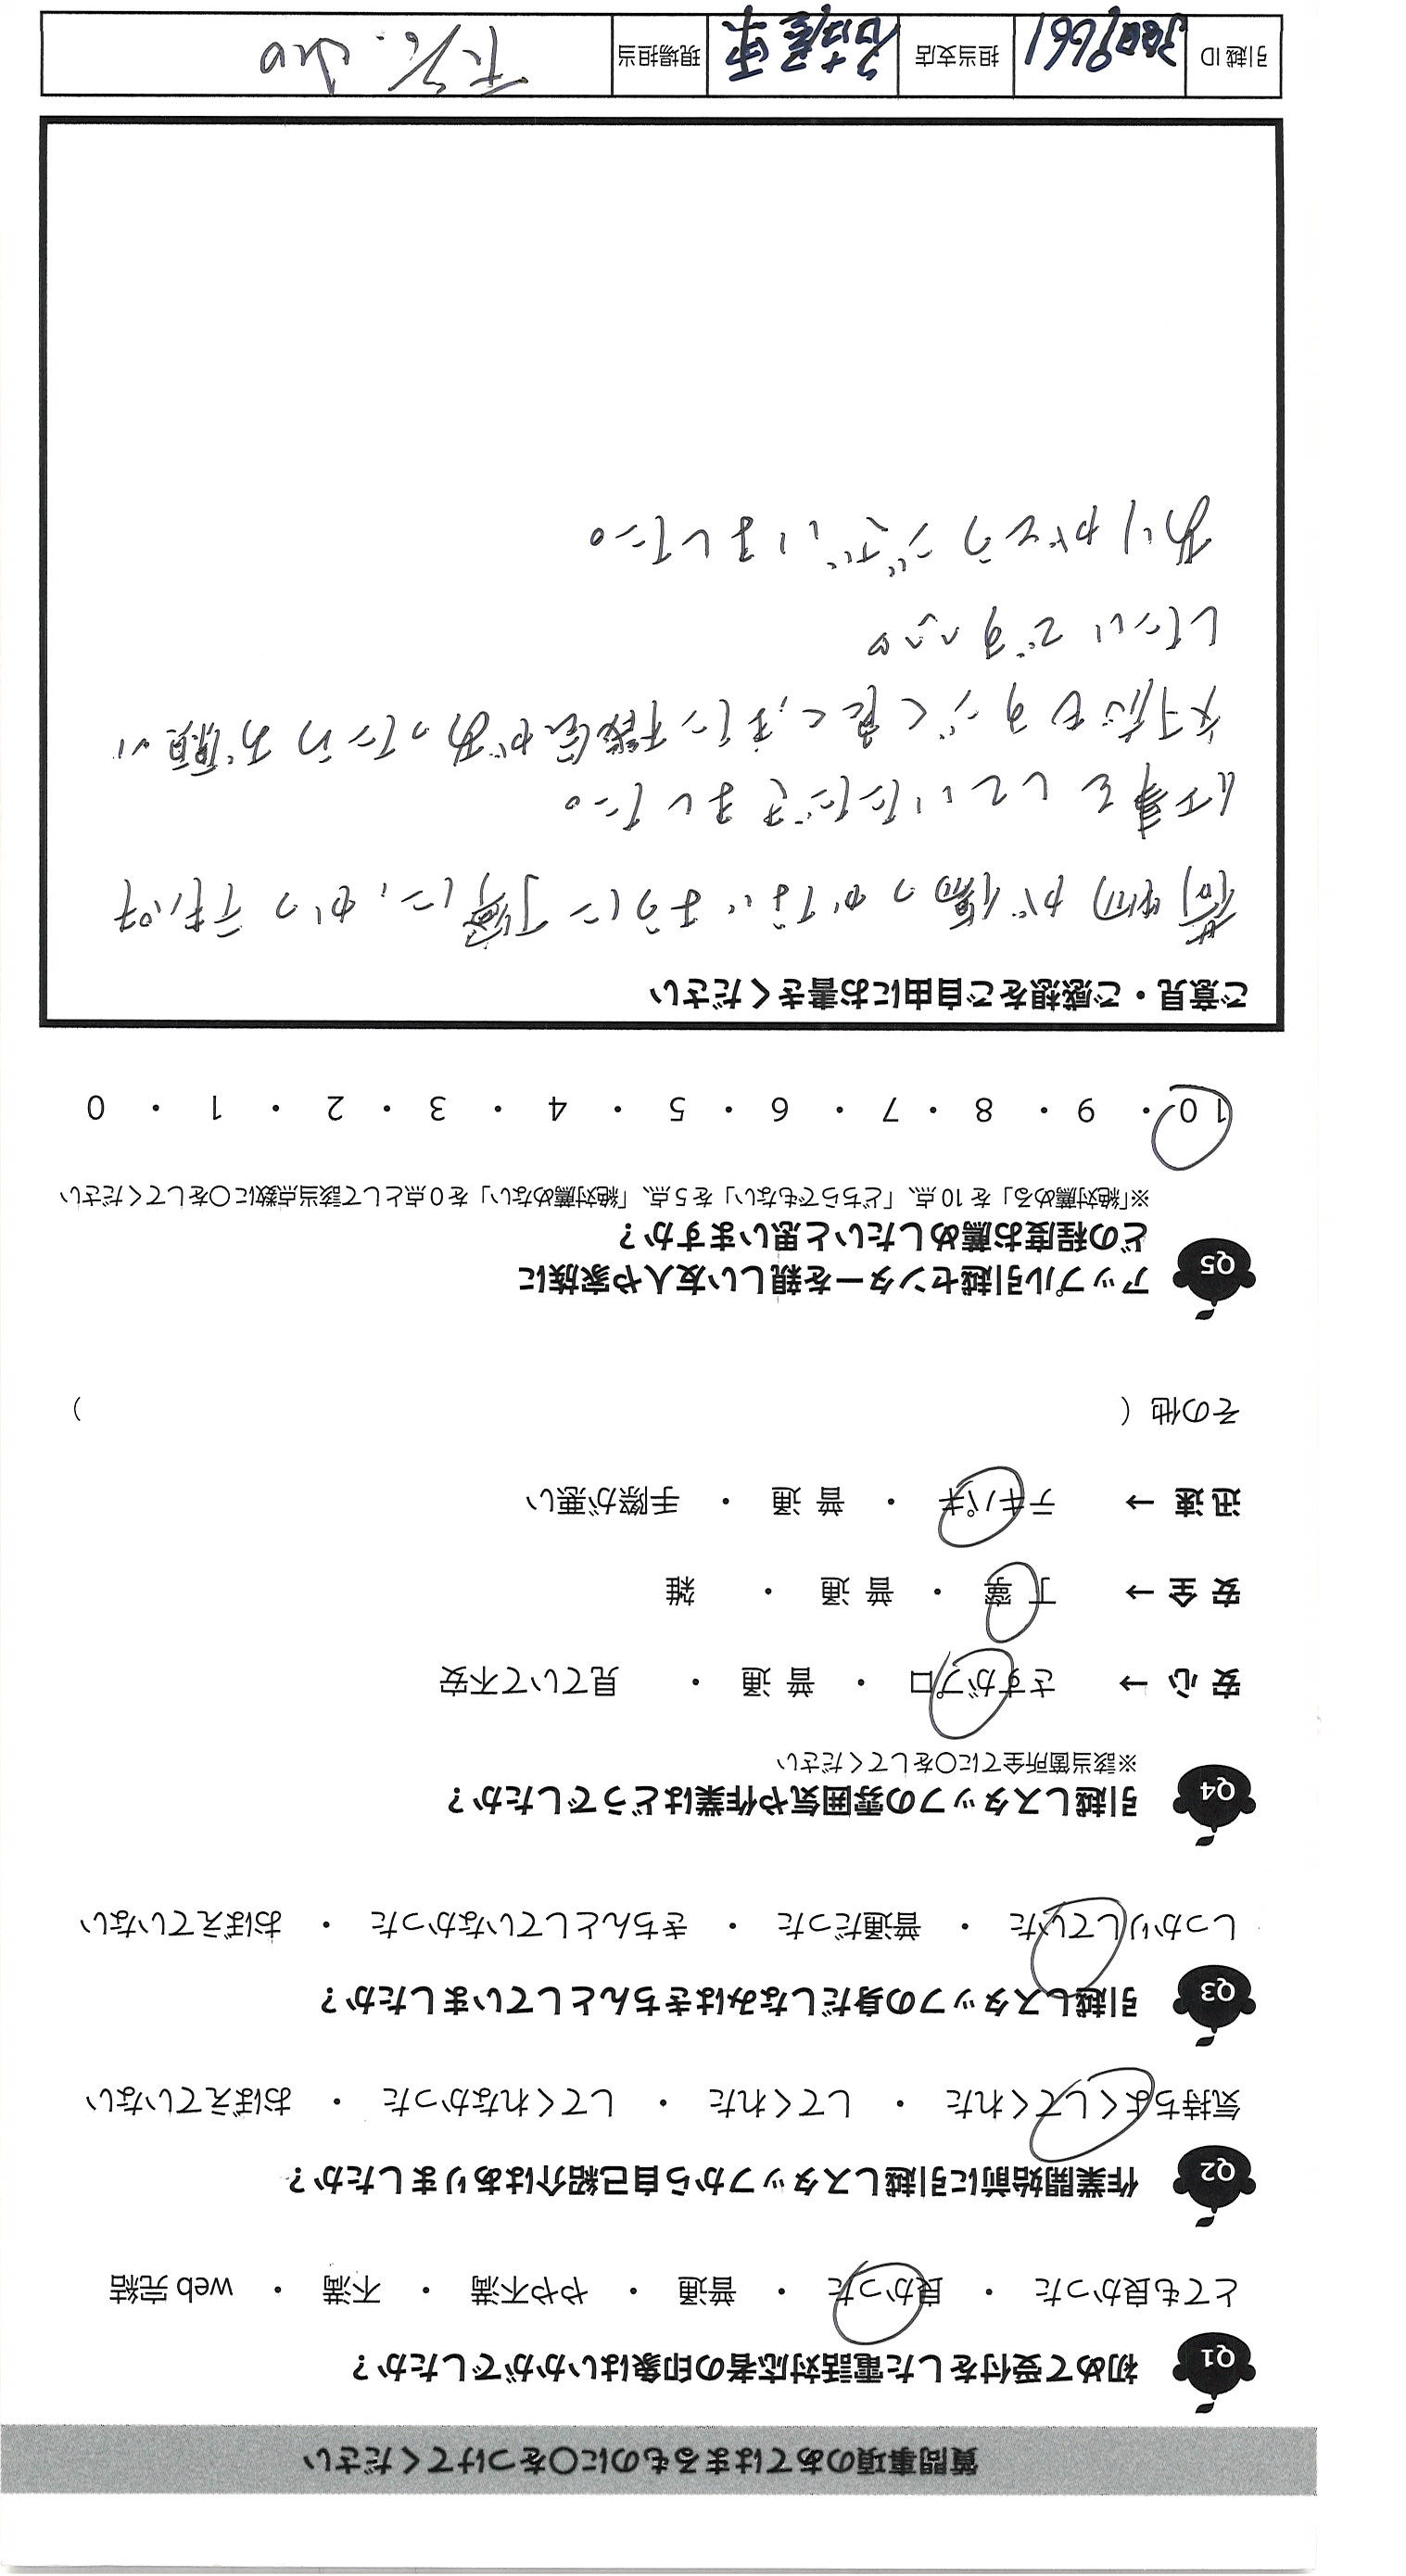 質問事項のあてはまるものに〇をつけてください
Q1 初めて受付をした電話対応者の印象はいかがでしたか？
とても良かった ・ 良かった ・ 普通 ・ やや不満 ・ 不満 ・ web 完結
Q2 作業開始前に引越しスタッフから自己紹介はありましたか？
気持ちよくしてくれた ・ してくれた ・ してくれなかった ・ おぼえていない
Q3 引越しスタッフの身だしなみはきちんとしていましたか？
しっかりしていた ・ 普通だった ・ きちんとしていなかった ・ おぼえていない
Q4 引越しスタッフの雰囲気や作業はどうでしたか？
※該当箇所全てに〇をしてください
安 心 → さすがプロ ・ 普 通 ・ 見ていて不安
安 全 → 丁 寧 ・ 普 通 ・ 雑
迅 速 → テキパキ ・ 普 通 ・ 手際が悪い
その他（ ）
Q5 アップル引越センターを親しい友人や家族に
どの程度お薦めしたいと思いますか？
※「絶対薦める」を 10 点、「どちらでもない」を 5 点、「絶対薦めない」を 0 点として該当点数に〇をしてください
10 ・ 9 ・ 8 ・ 7 ・ 6 ・ 5 ・ 4 ・ 3 ・ 2 ・ 1 ・ 0
ご意見・ご感想をご自由にお書きください
荷物が傷つかないように丁寧に、かつテキパキ
仕事をしていただきました。
対応もすごく良く、また機会があったらお願い
したいです^^
ありがとうございました。
引越 ID 担当支店 名古屋東 現場担当